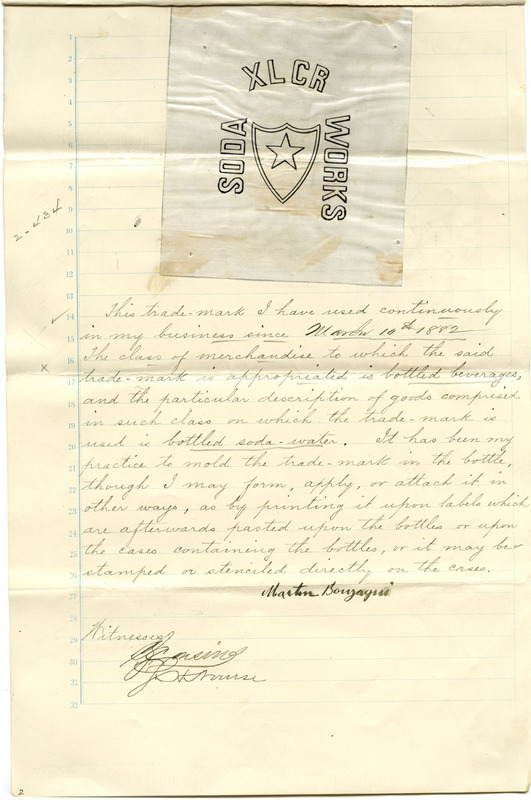 XLCR
SODA WORKS
1
2
3
4
5
6
7
8
9
10
11
12
13
14
15
16
17
18
19
20
21
22
23
24
25
26
27
28
29
30
31
32
2-434
This trade-mark I have used continuously
in my business since March 19th 1882
The class of merchandise to which the said
trade-mark is appropriated is bottled beverages,
and the particular description of goods comprised
in such class on which the trade-mark is
used is bottled soda-water. It has been my
practice to mold the trade-mark in the bottle,
though I may form, apply, or attach it in
other ways, as by printing it upon labels which
are afterwards pasted upon the bottles or upon
the cases containing the bottles, or it may be
stamped or stenciled directly on the cases.
Martin
Witnesses
Nourse
2